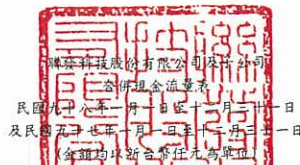 聯發科技股份有限公司及子公司
合併現金流量表
民國九十八年一月一日至十二月三十一日
及民國九十七年一月一日至十二月三十一日
(金額均以新台幣仟元為單位)